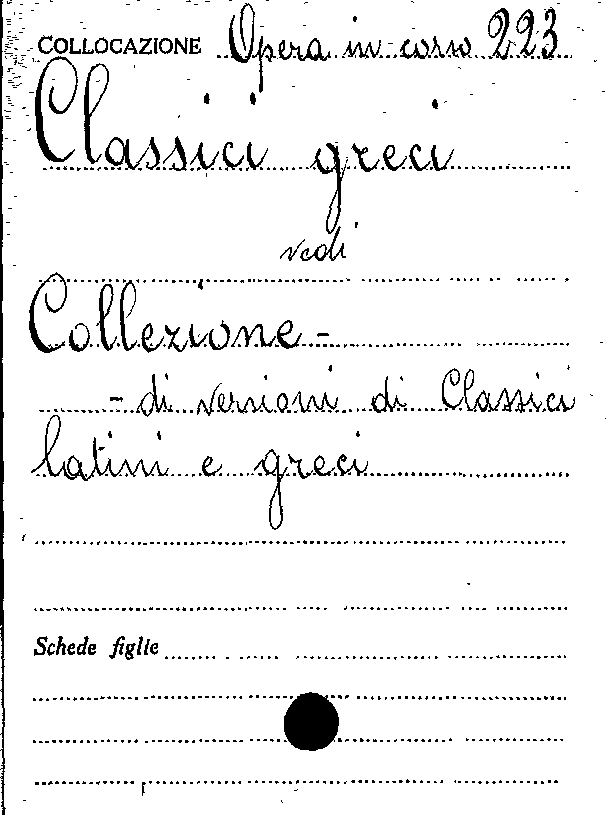 COLLOCAZIONE Opera in corso 223
Classici greci
vedi
Collezione -
- di versioni di Classici
latini e greci
Schede figlie